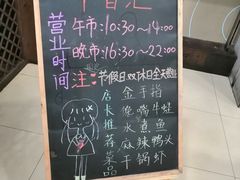 营业时间
午市:10:30~14:00
晚市:16:30~22:00
注:节假日双休日全天营业
店长推荐菜品
金手指
俺嘴牛蛙
水煮鱼
麻辣鸭头
干锅虾